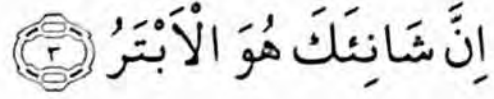 اِنَّ شَانِئَكَ هُوَ الْاَبْتَرُ ﴿٣﴾